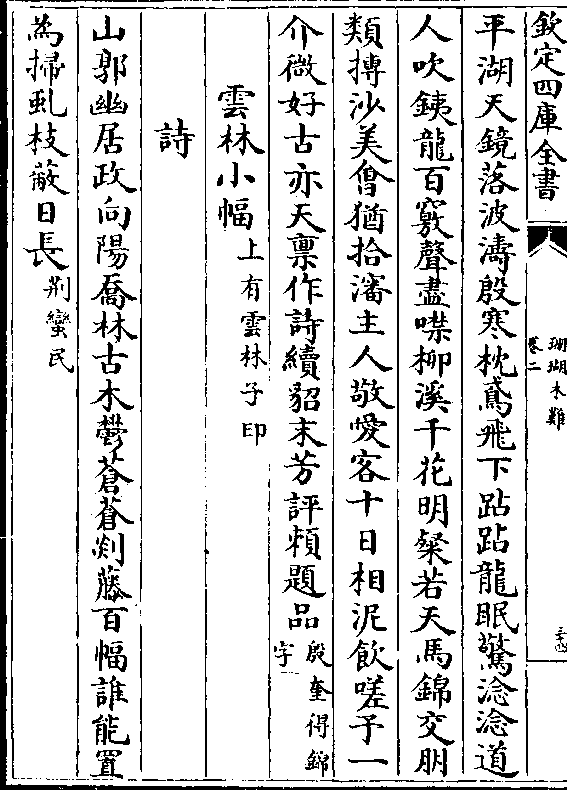 欽定四庫全書
珊瑚木難
卷二
平湖天鏡落波濤殷寒枕鳶飛下跕跕龍眠驚淰淰道
人吹銕龍百竅聲盡噤柳溪千花明粲若天馬錦交朋
類摶沙美儈猶拾瀋主人敬愛客十日相泥飲嗟予一
介微好古亦天禀作詩續貂末芳評頼題品殷奎得錦字
雲林小幅上有雲林子印
詩
山郭幽居政向陽喬林古木鬱蒼蒼剡藤百幅誰能置
為掃虬枝蔽日長荆蠻民